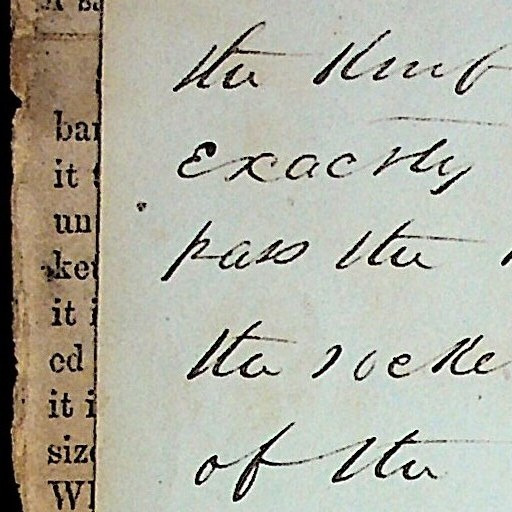 bar
it
un
ket
it i
ed
it i
siz
the
exactly
pass the
the socke
of the